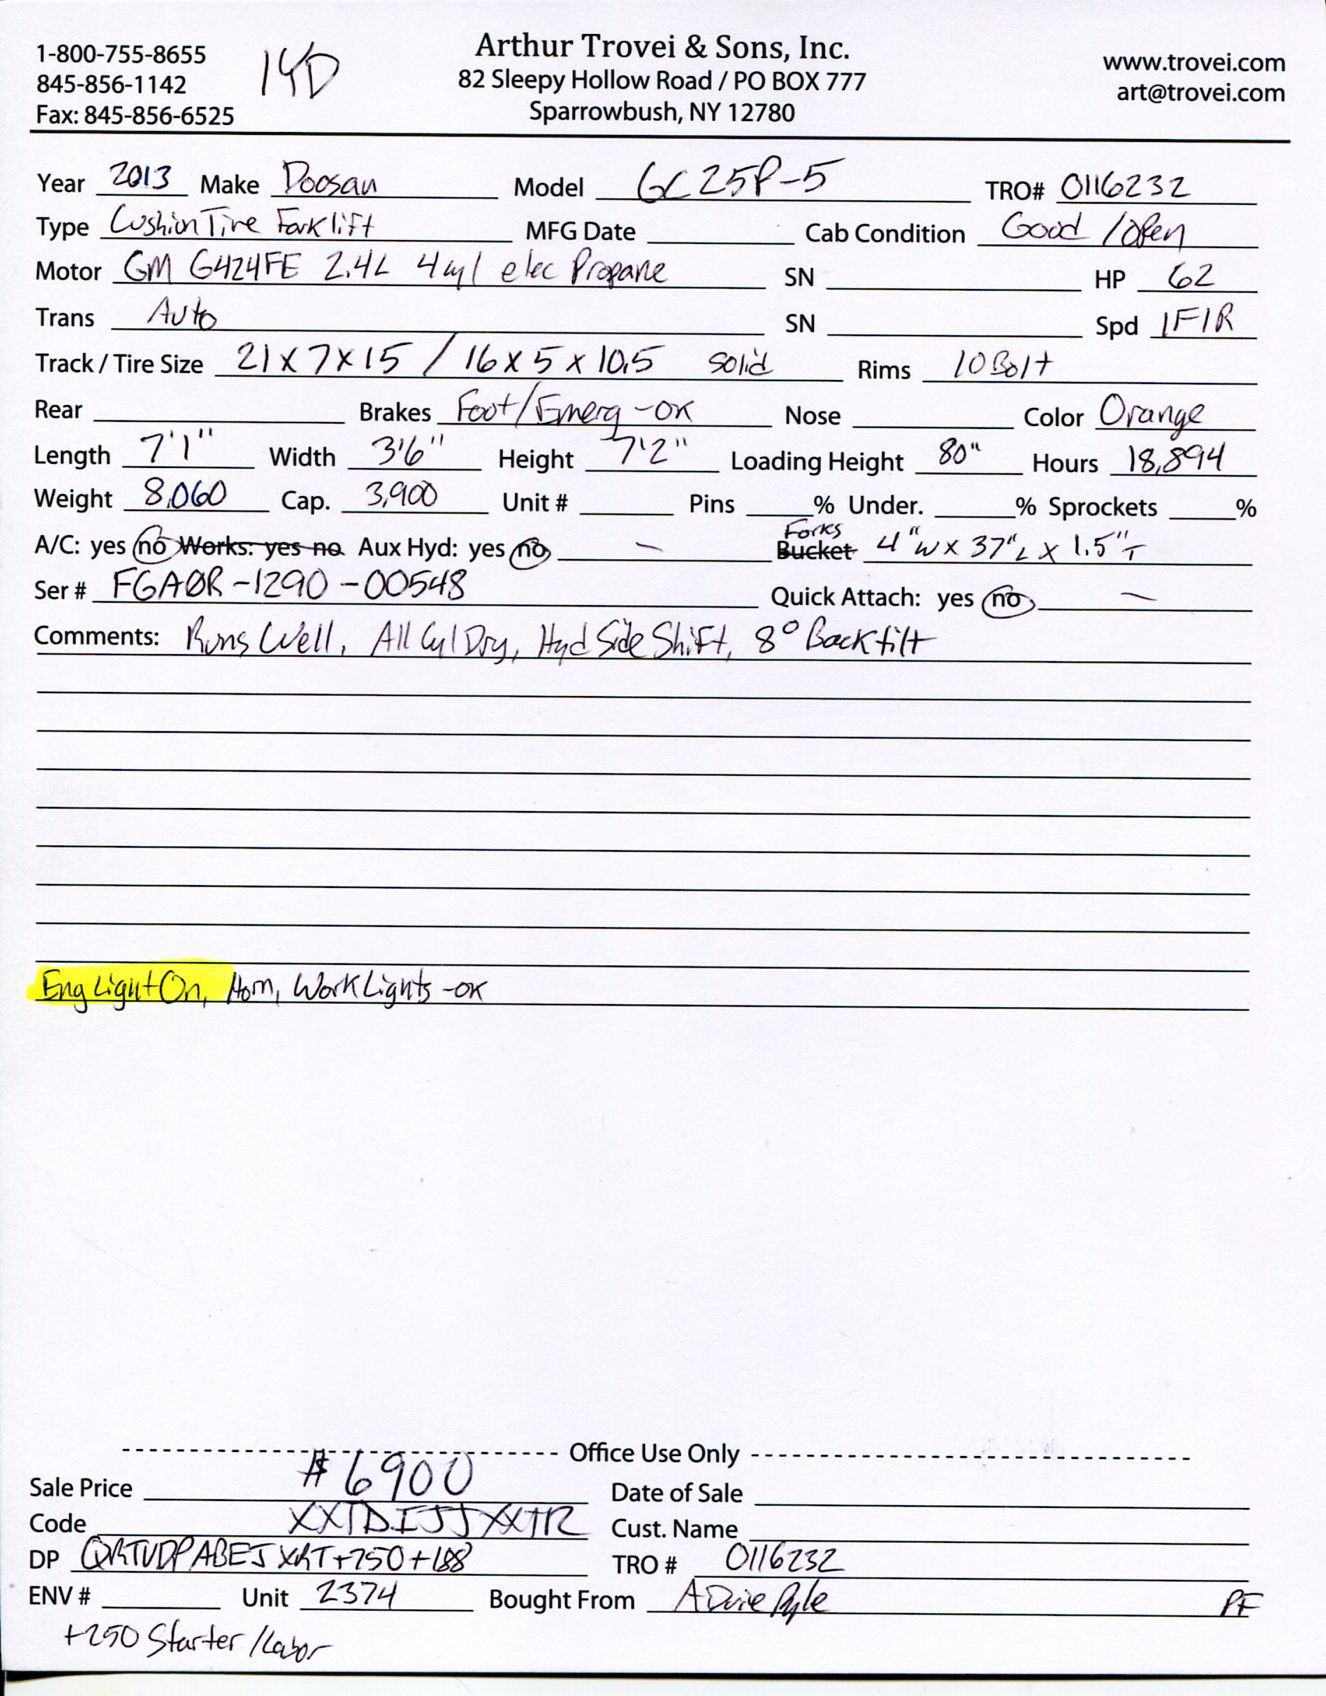 1-800-755-8655
845-856-1142
Fax: 845-856-6525
14D
Arthur Trovei & Sons, Inc.
82 Sleepy Hollow Road / PO BOX 777
Sparrowbush, NY 12780
www.trovei.com
art@trovei.com
Year 2013 Make Doosan Model GC25P-5 TRO# 0116232
Type Cushion Tire Forklift MFG Date Cab Condition Good / Open
Motor GM G424FE 2.4L 4cyl elec Propane SN HP 62
Trans Auto SN Spd 1F1R
Track / Tire Size 21 x 7 x 15 / 16 x 5 x 10.5 solid Rims 10 Bolt
Rear Brakes Foot/Emerg -OK Nose Color Orange
Length 7'1" Width 3'6" Height 7'2" Loading Height 80" Hours 18,894
Weight 8,060 Cap. 3,900 Unit # Pins % Under. % Sprockets %
A/C: yes no Works: yes no Aux Hyd: yes no — Bucket Forks 4"W x 37"L x 1.5"T
Ser # FGA0R-1290-00548 Quick Attach: yes no —
Comments: Runs Well, All Cyl Dry, Hyd Side Shift, 8° Back tilt
Eng Light On, Horn, Work Lights -OK
Office Use Only
Sale Price $6900 Date of Sale
Code Cust. Name
DP TRO # 0116232
ENV # Unit 2374 Bought From PF
+250 Starter / Labor